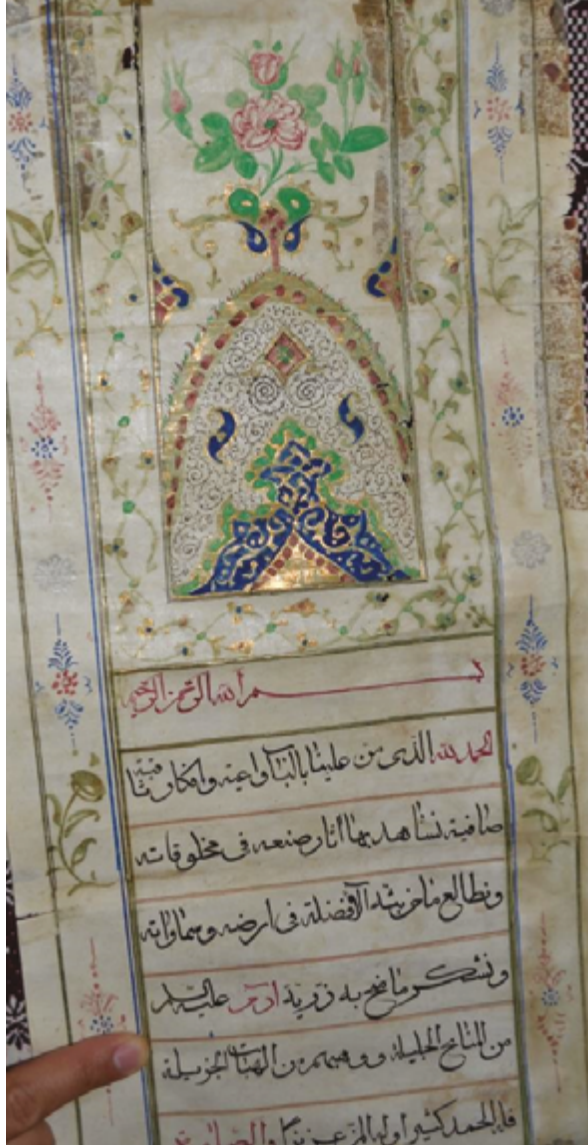 بسم الله الرحمن الرحيم
الحمد لله الذى من علينا بالباب واعية وافكار
صافية نشاهد بها اثار صنعه فى مخلوقاته
ونطالع ما فضله فى ارضه وسماواته
ونشكر ما منح به ذرية ادم عليه السلام
من المنايح الجليلة ووهبهم من الهبات الجزيلة
فله الحمد كثيرا